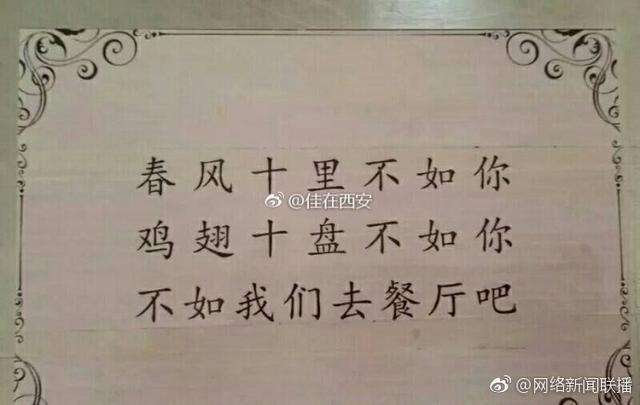 春风十里不如你
@佳在西安
鸡翅十盘不如你
不如我们去餐厅吧
@网络新闻联播